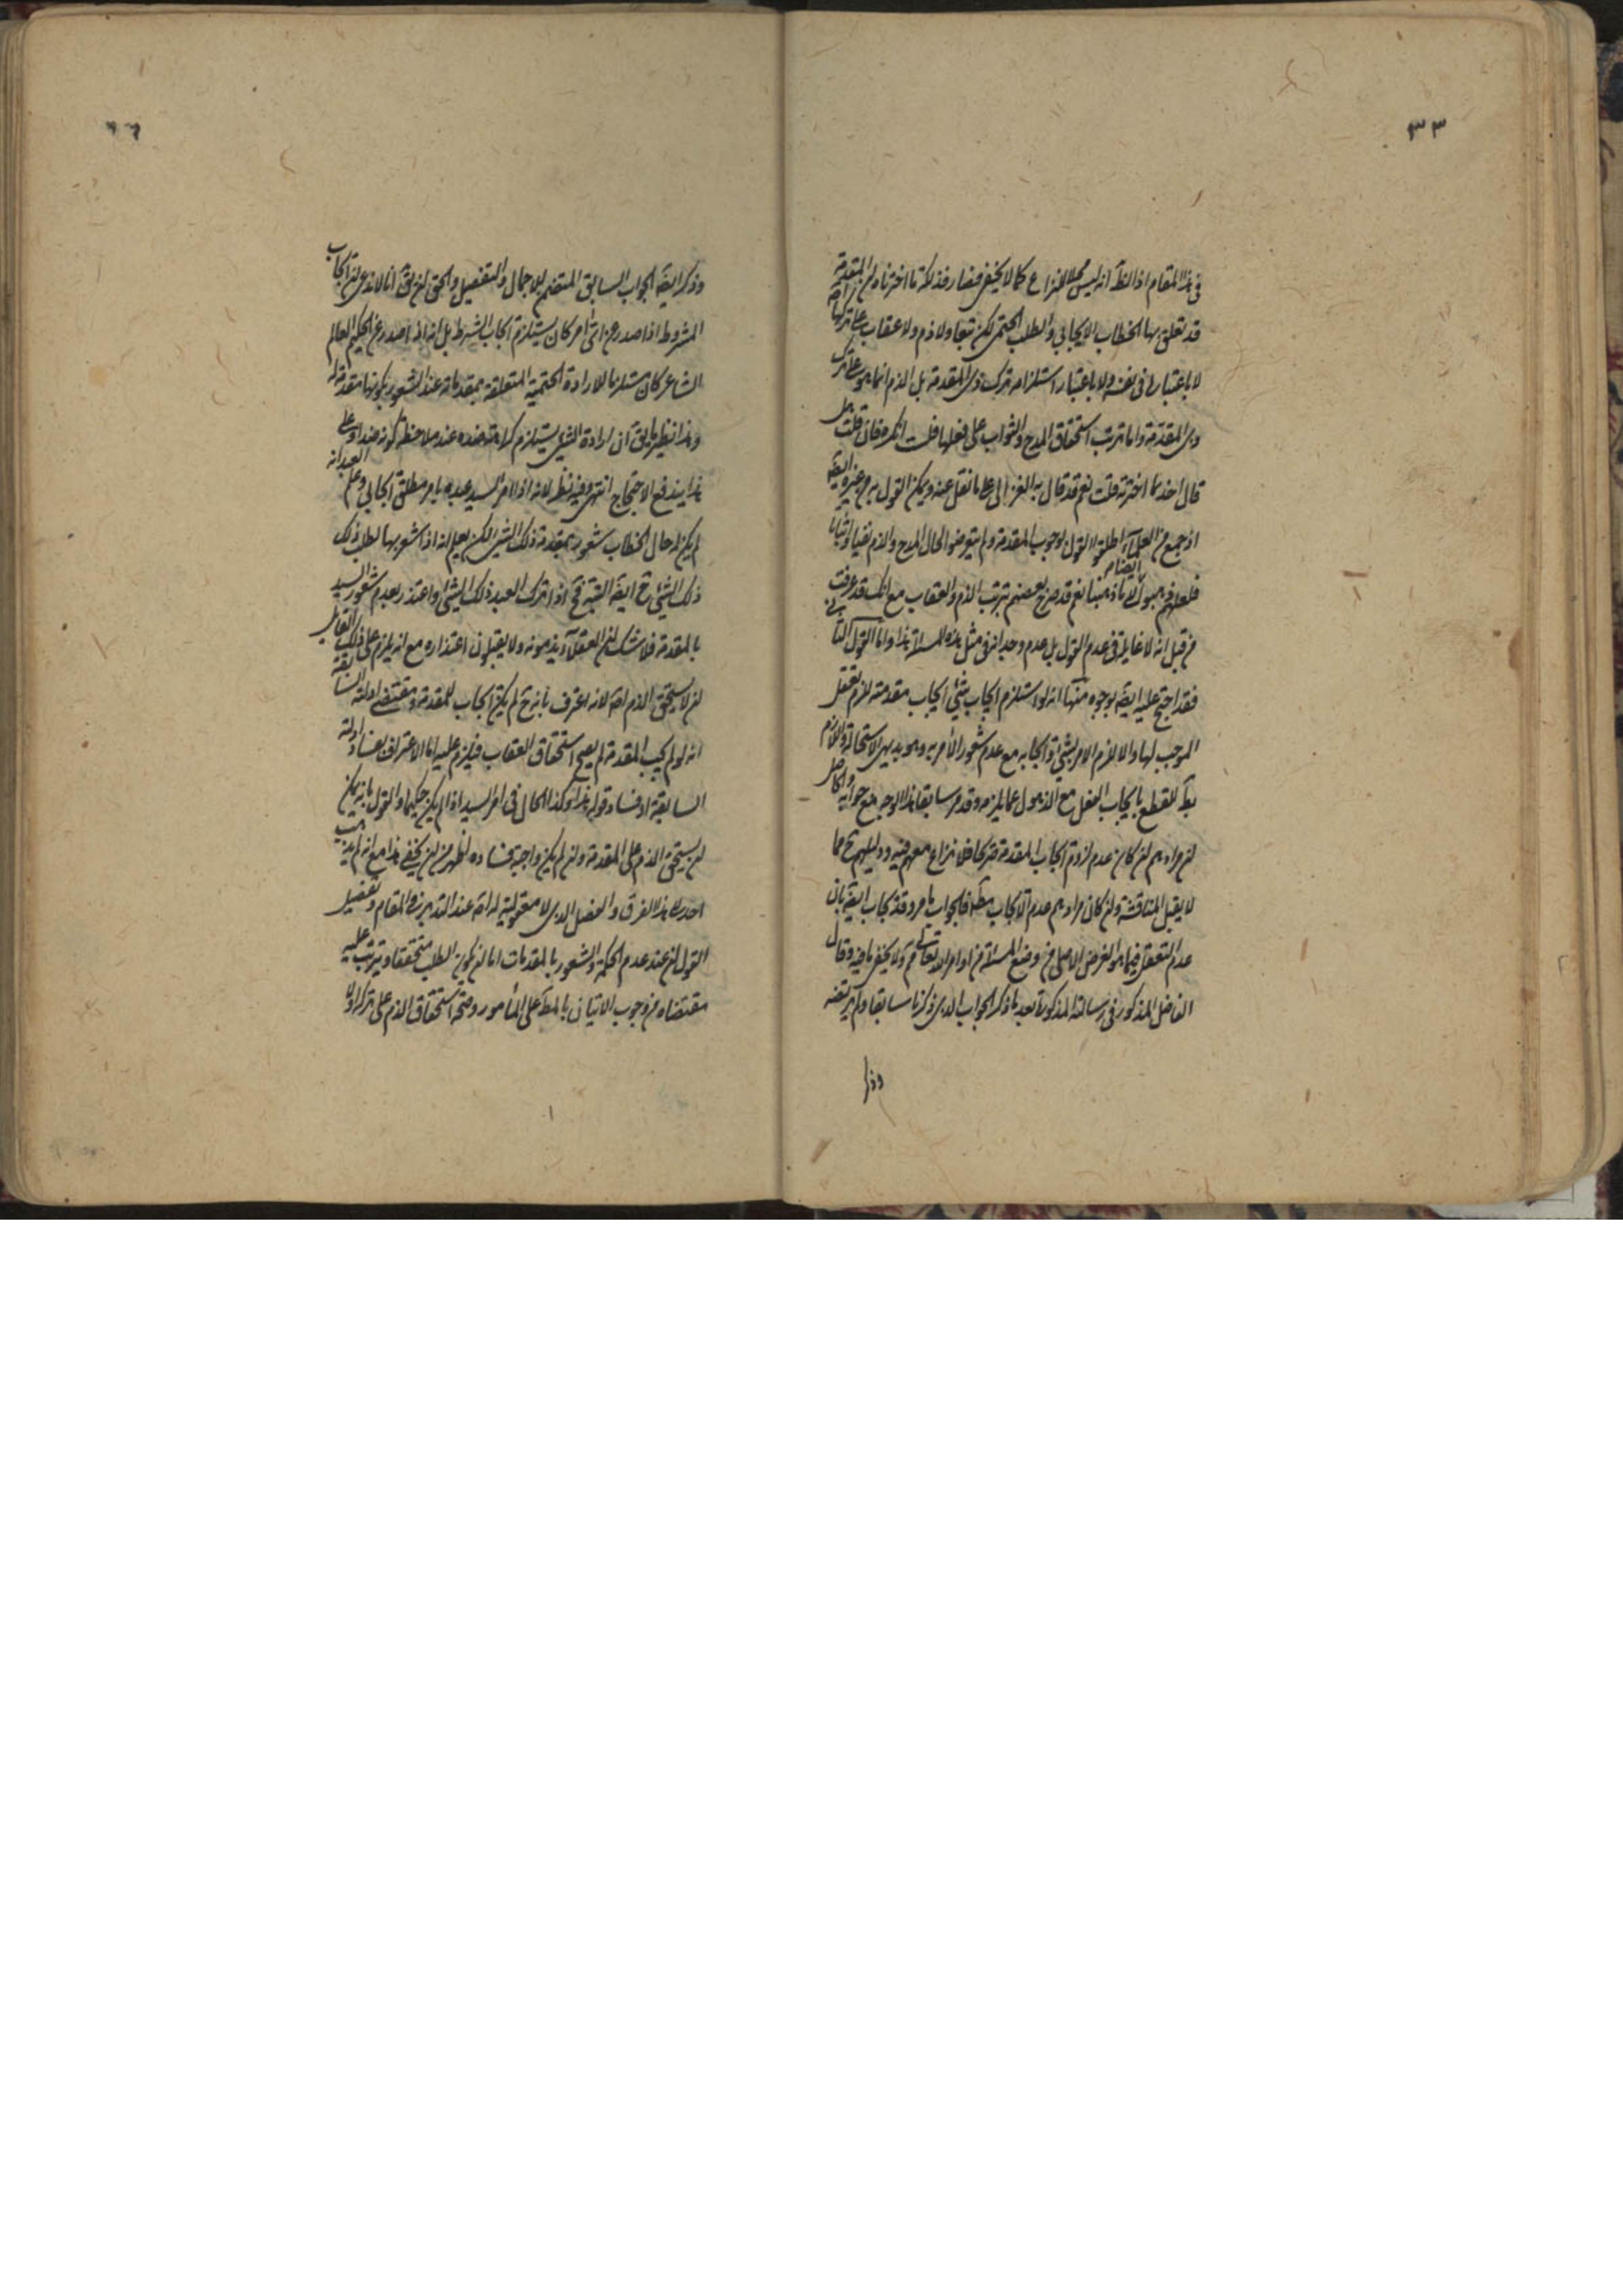 ٣٣
في هذا المقام اذ الظ انه ليس محلا للنزاع كما لا يخفى فصار فذلكة ما اخترناه ان المقدمة
قد تعلق بها الخطاب الايجابي والطلب الحتمي لكن تبعا ولا ذم ولا عقاب على تركها اصلا
لا باعتبار في نفسه ولا باعتبار استلزامه ترك ذي المقدمة بل الذم انما هو على ترك
ذي المقدمة واما ترتب استحقاق المدح والثواب على فعلها فان قلت هل
قال احد بما اخترته قلت نعم قد قال به الغزالي على ما نقل عنه ويمكن القول به من غيره ايضا
اذ جمع من العلماء اطلقوا القول بوجوب المقدمة ولم يتعرضوا لحال المدح والذم نفيا واثباتا
فلعلهم ذهبوا الى ما ذهبنا نعم قد صرح بعضهم بترتب الذم والعقاب مع انك قد عرفت
من قبل انه لا غائلة في عدم القول بل عدم وجدانه في مثل هذه المسألة هذا واما القول الثاني
فقد احتج عليه ايضا بوجوه منها انه لو استلزم ايجاب شيء ايجاب مقدمته لزم تعقل
الموجب لها والا لزم الامر بشيء وايجابه مع عدم شعور الآمر به وهو بديهي الاستحالة واللازم
بط للقطع بايجاب الفعل مع الذهول عما يلزمه وقد مر سابقا هذا الوجه مع جوابه والحاصل
ان مرادهم ان كان عدم لزوم ايجاب المقدمة صريحا فلا نزاع معهم فيه ودليلهم ح مما
لا يقبل المناقشة وان كان مرادهم عدم الايجاب مط فالجواب ما مر وقد يجاب ايضا بان
عدم التعقل فيما هو الغرض الاصلي من وضع المسألة من اوامر الله تعالى مم ولا يخفى ما فيه وقال
الفاضل المذكور في رسالته المذكورة بعد ما ذكر الجواب الذي ذكرنا سابقا ولم يرتضه
وذكر
وذكر ايضا الجواب السابق المتضمن للاجمال والتفصيل والحق ان يق انا لا ندعي ان ايجاب
المشروط اذا صدر عن اي امر كان يستلزم ايجاب الشرط بل انه اذا صدر عن الحكيم العالم
الشاعر كان مستلزما للارادة الحتمية المتعلقة بمقدماته عند الشعور بكونها مقدمة له
وهذا نظير ما يق ان ارادة الشيء يستلزم كراهة ضده عند ملاحظة كونه ضدا وعلى
هذا يندفع الاحتجاج انتهى وفيه نظر لانه اذا امر السيد عبده بامر مطلق ايجابي وعلم العبد انه
لم يكن له حال الخطاب شعور بمقدمة ذلك الشيء لكن يعلم انه اذا شعر بها لطلب ذلك
ذلك الشيء ح ايضا البتة فح اذا ترك العبد ذلك الشيء واعتذر بعدم شعور السيد
بالمقدمة فلا شك ان العقلاء يذمونه ولا يقبلون اعتذاره مع انه يلزم على ذلك القائل
ان لا يستحق الذم اصلا لانه اعترف بانه ح لم يكن ايجاب للمقدمة ومقتضى ادلته السابقة
انه لو لم يجب المقدمة لم يصح استحقاق العقاب فيلزم عليه اما الاعتراف بفساد ادلته
السابقة او فساد قوله هذا وكذا الحال في امر السيد اذا لم يكن حكيما والقول بانه يمكن
ان يستحق الذم على المقدمة وان لم يكن واجبة فساده اظهر من ان يخفى هذا مع انه لم يذهب
احد الى هذا الفرق والفصل الذي لا معقولية له اصلا عند التدبر في المقام وتفصيل
القول ان عند عدم الحكمة والشعور بالمقدمات اما ان يكون الطلب متحققا ويترتب عليه
مقتضاه من وجوب الاتيان بالمط على المأمور وصحة استحقاق الذم على تركه او لا